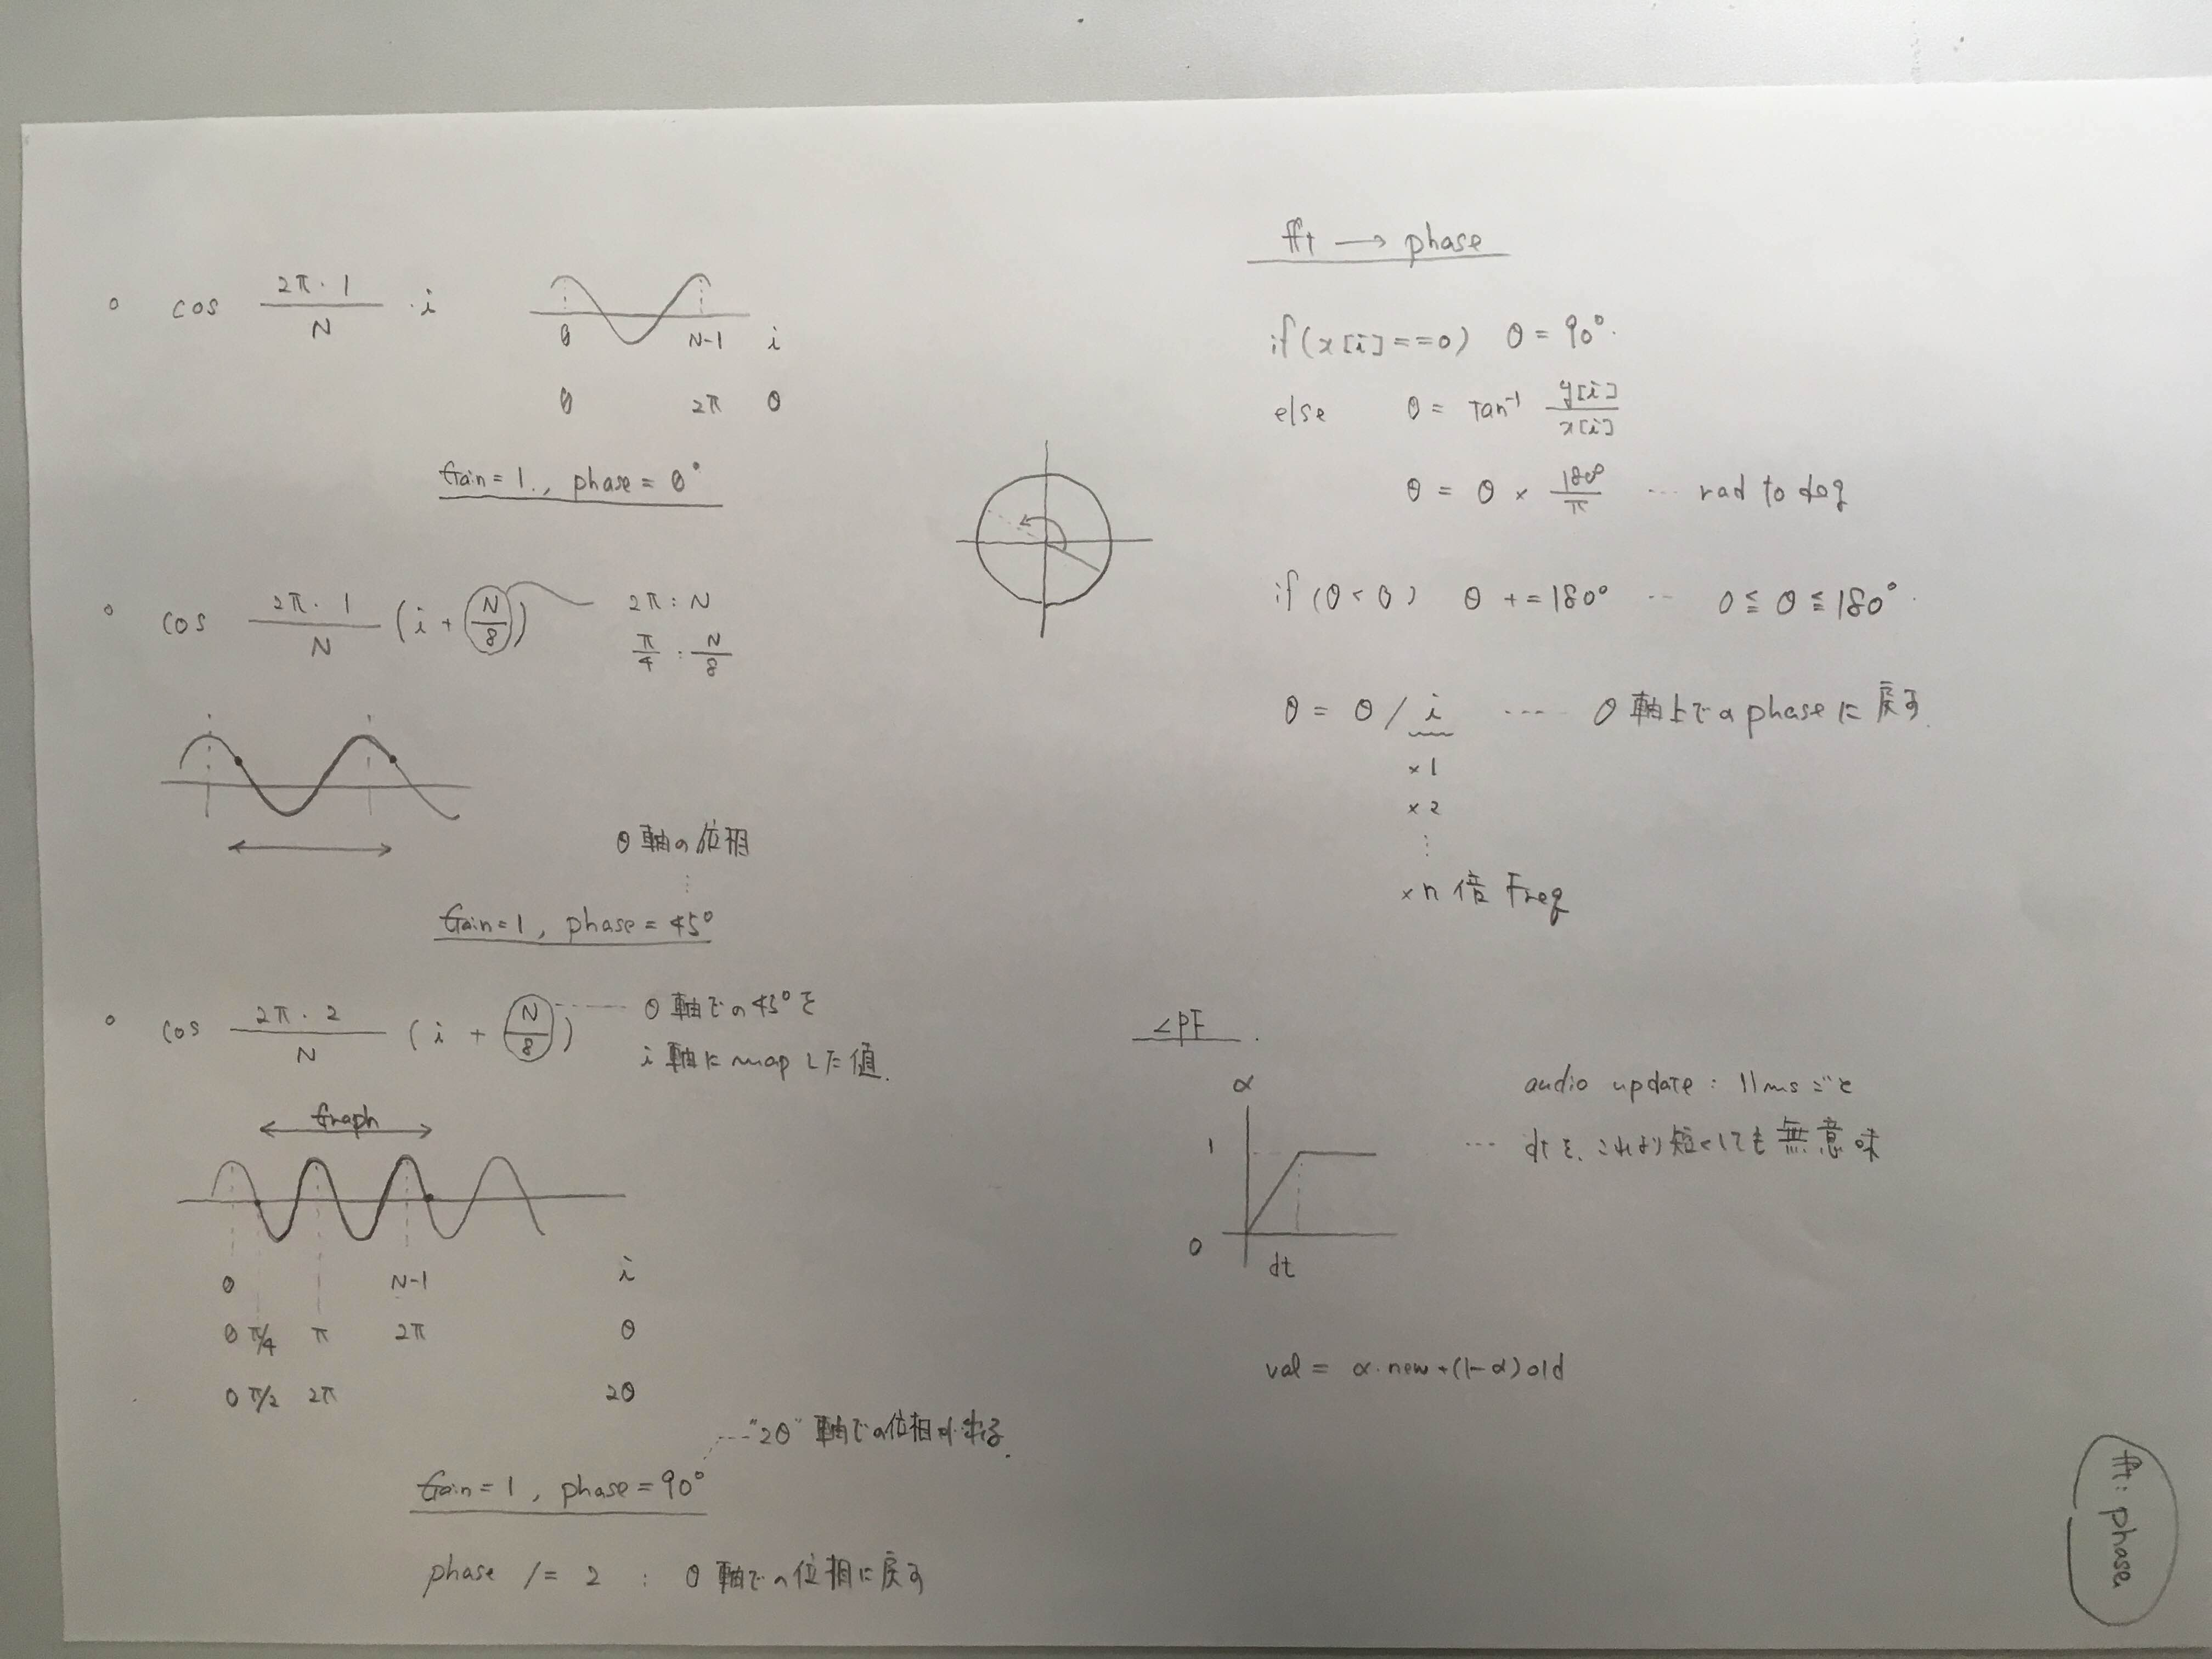 ○ cos 2π・1/N ・i
0 N-1 i
0 2π θ
Gain=1., phase=0°
○ cos 2π・1/N (i+N/8)
2π:N
π/4:N/8
θ軸の位相
Gain=1, phase=45°
○ cos 2π・2/N (i+N/8)
θ軸での45°を
i軸にmapした値.
Graph
0 N-1 i
0 π/4 π 2π θ
0 π/2 2π 2θ
"2θ"軸での位相が
Gain=1, phase=90°
phase /= 2 : θ軸での位相に戻す
fft → phase
if(x[i]==0) θ=90°.
else θ= Tan⁻¹ y[i]/x[i]
θ = θ × 180°/π … rad to deg
if(θ<0) θ+=180° … 0≦θ≦180°.
θ = θ/i …… θ軸上でのphaseに戻す.
×1
×2
⋮
×n倍 Freq
LPF.
α
1
0
dt
audio update: 11msごと
… dtを、これより短くしても無意味
val = α・new+(1-α)old
fft: phase